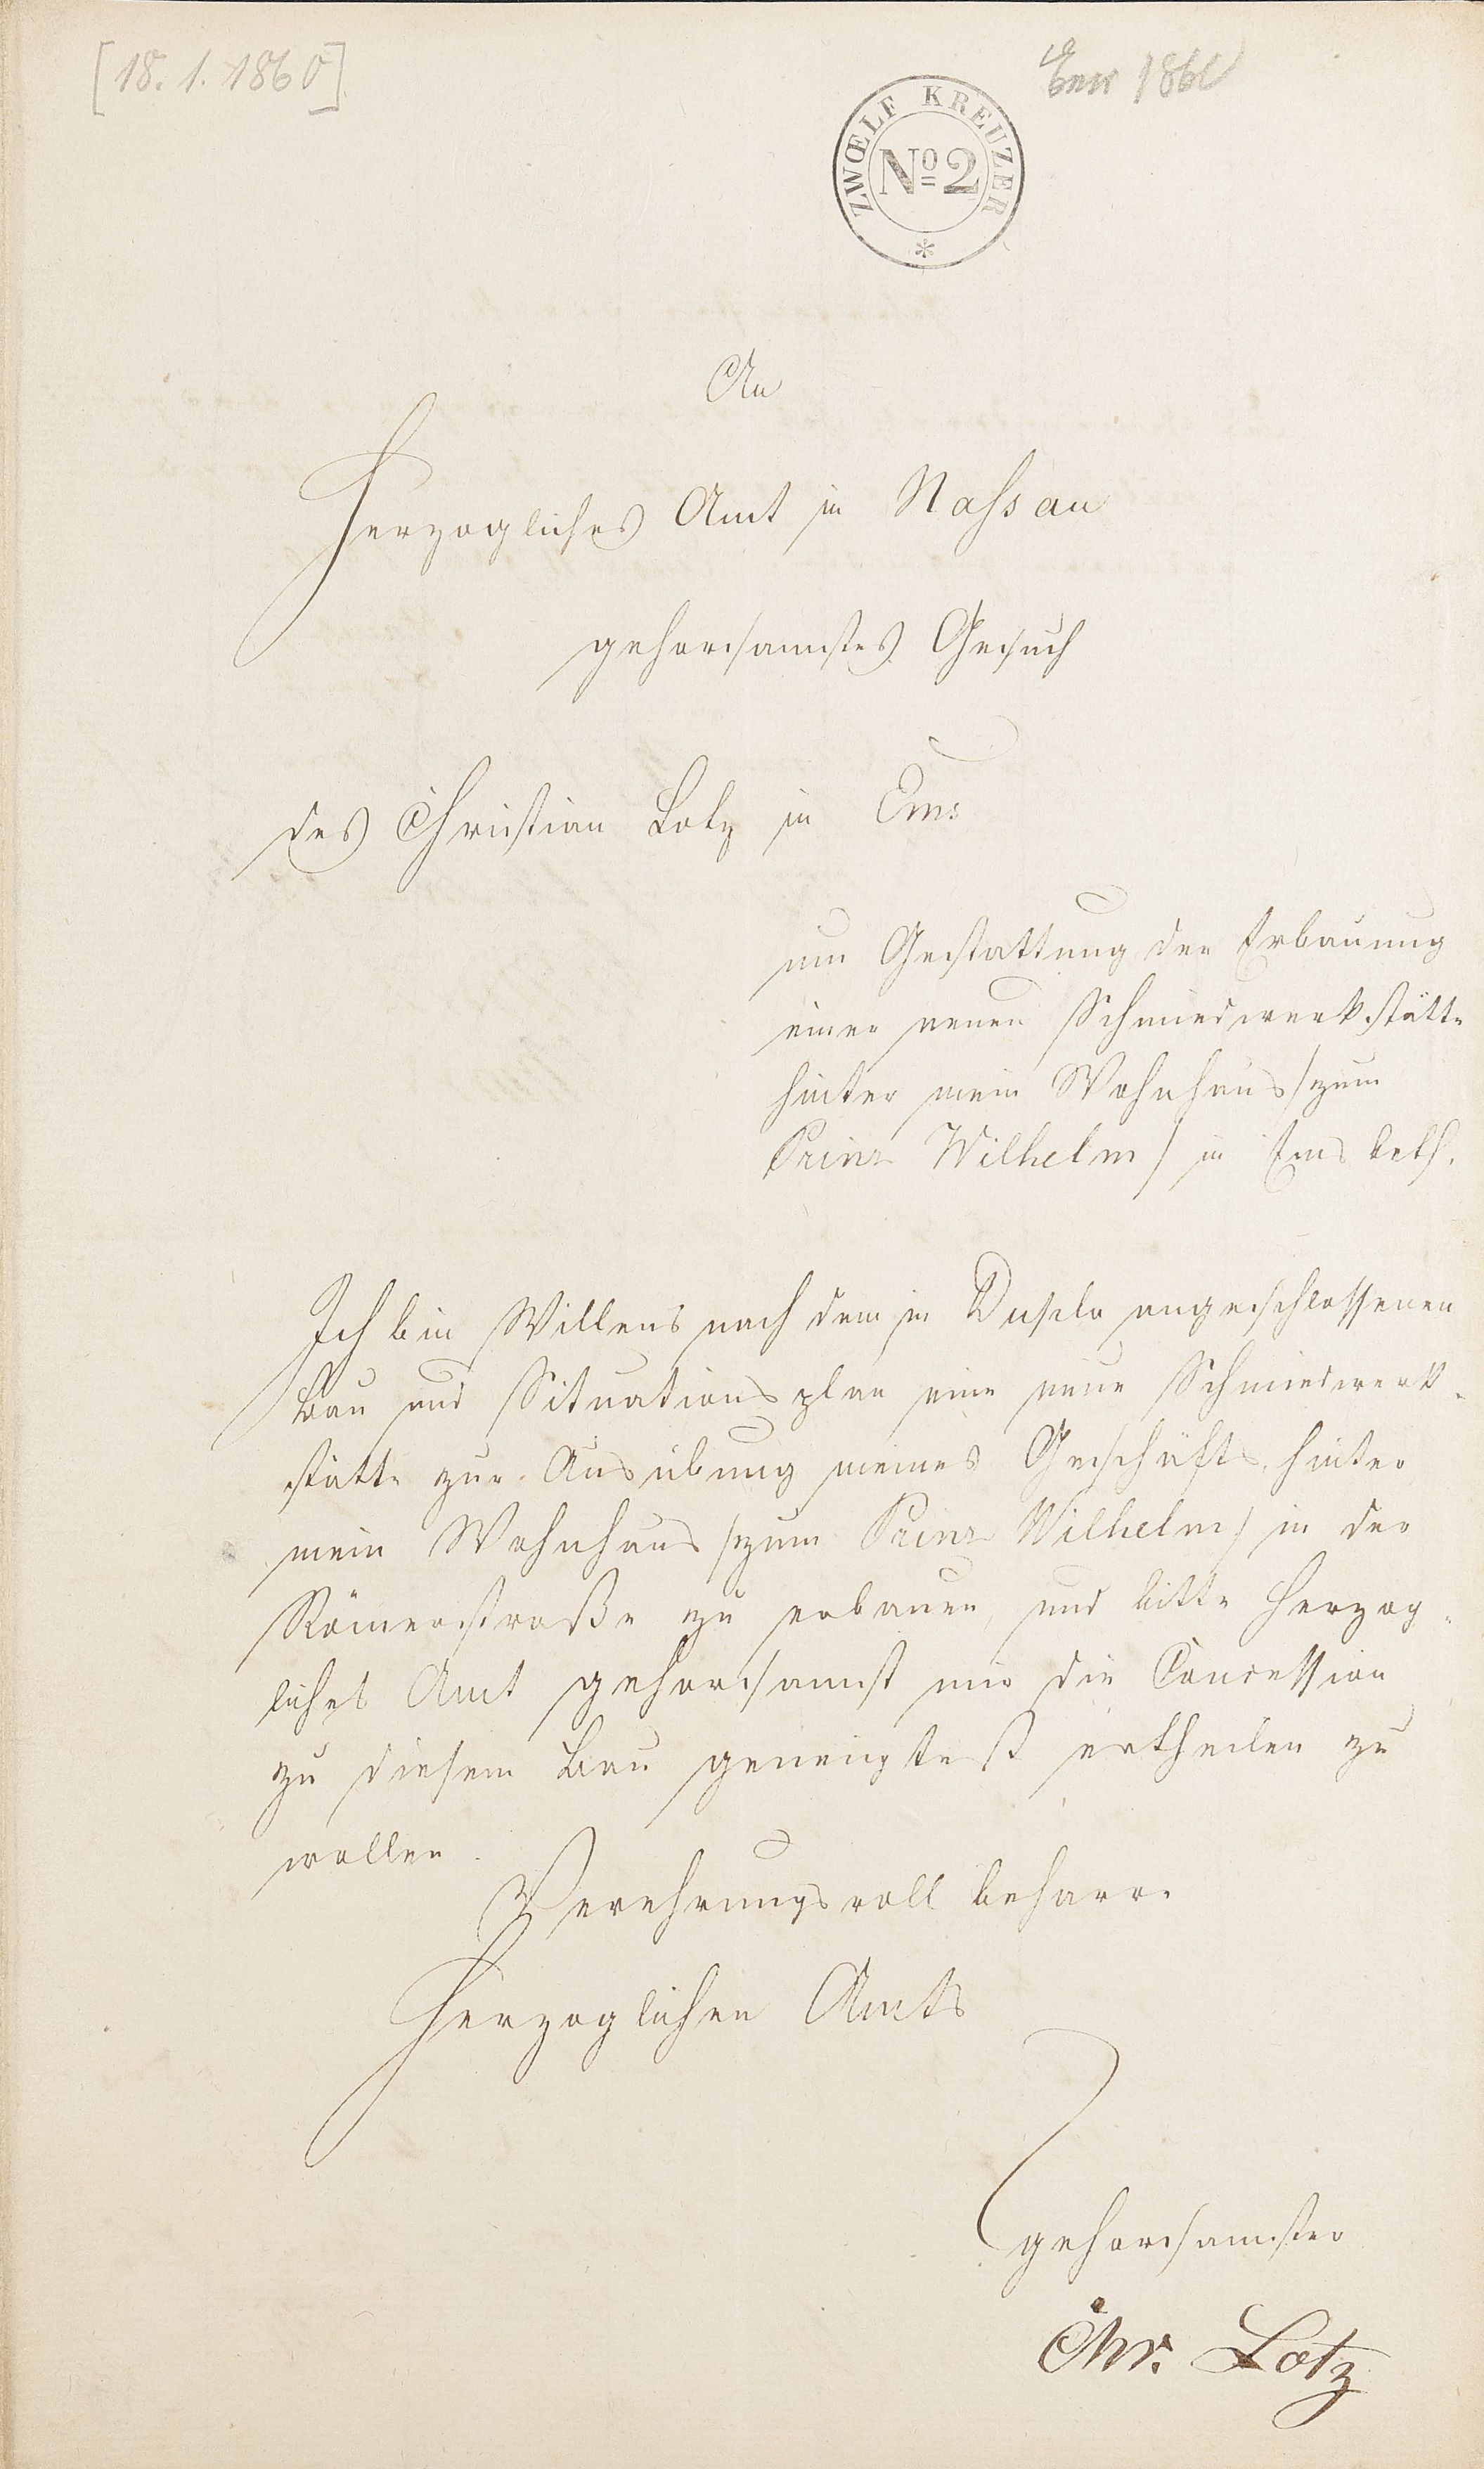 [18. 1. 1860]
1860
ZWŒLF KREUZER
No 2
*
An
Herzogliches Amt in Nassau
gehorsamstes Gesuch
des Christian Lotz in Ems
um Gestattung der Erbauung
einer neuen Schmiedwerkstätte
hinter mein Wohnhaus /zum
Prinz Wilhelm/ in Ems betr.
Ich bin Willens nach dem in Duplo angeschlossenen
Bau und Situationsplan eine neue Schmiedwerk-
stätte zur Ausübung meines Geschäfts, hinter
mein Wohnhaus /zum Prinz Wilhelm/ in der
Römerstraße zu erbauen, und bitte Herzog-
liches Amt gehorsamst mir die Concession
zu diesem Bau geneigtest ertheilen zu
wollen.
Verehrungsvoll beharre
Herzoglichen Amts
gehorsamster
Chr. Lotz